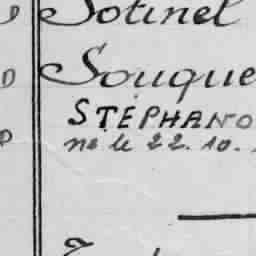 Sotinel
Souque
STEPHANO
né le 22.10.